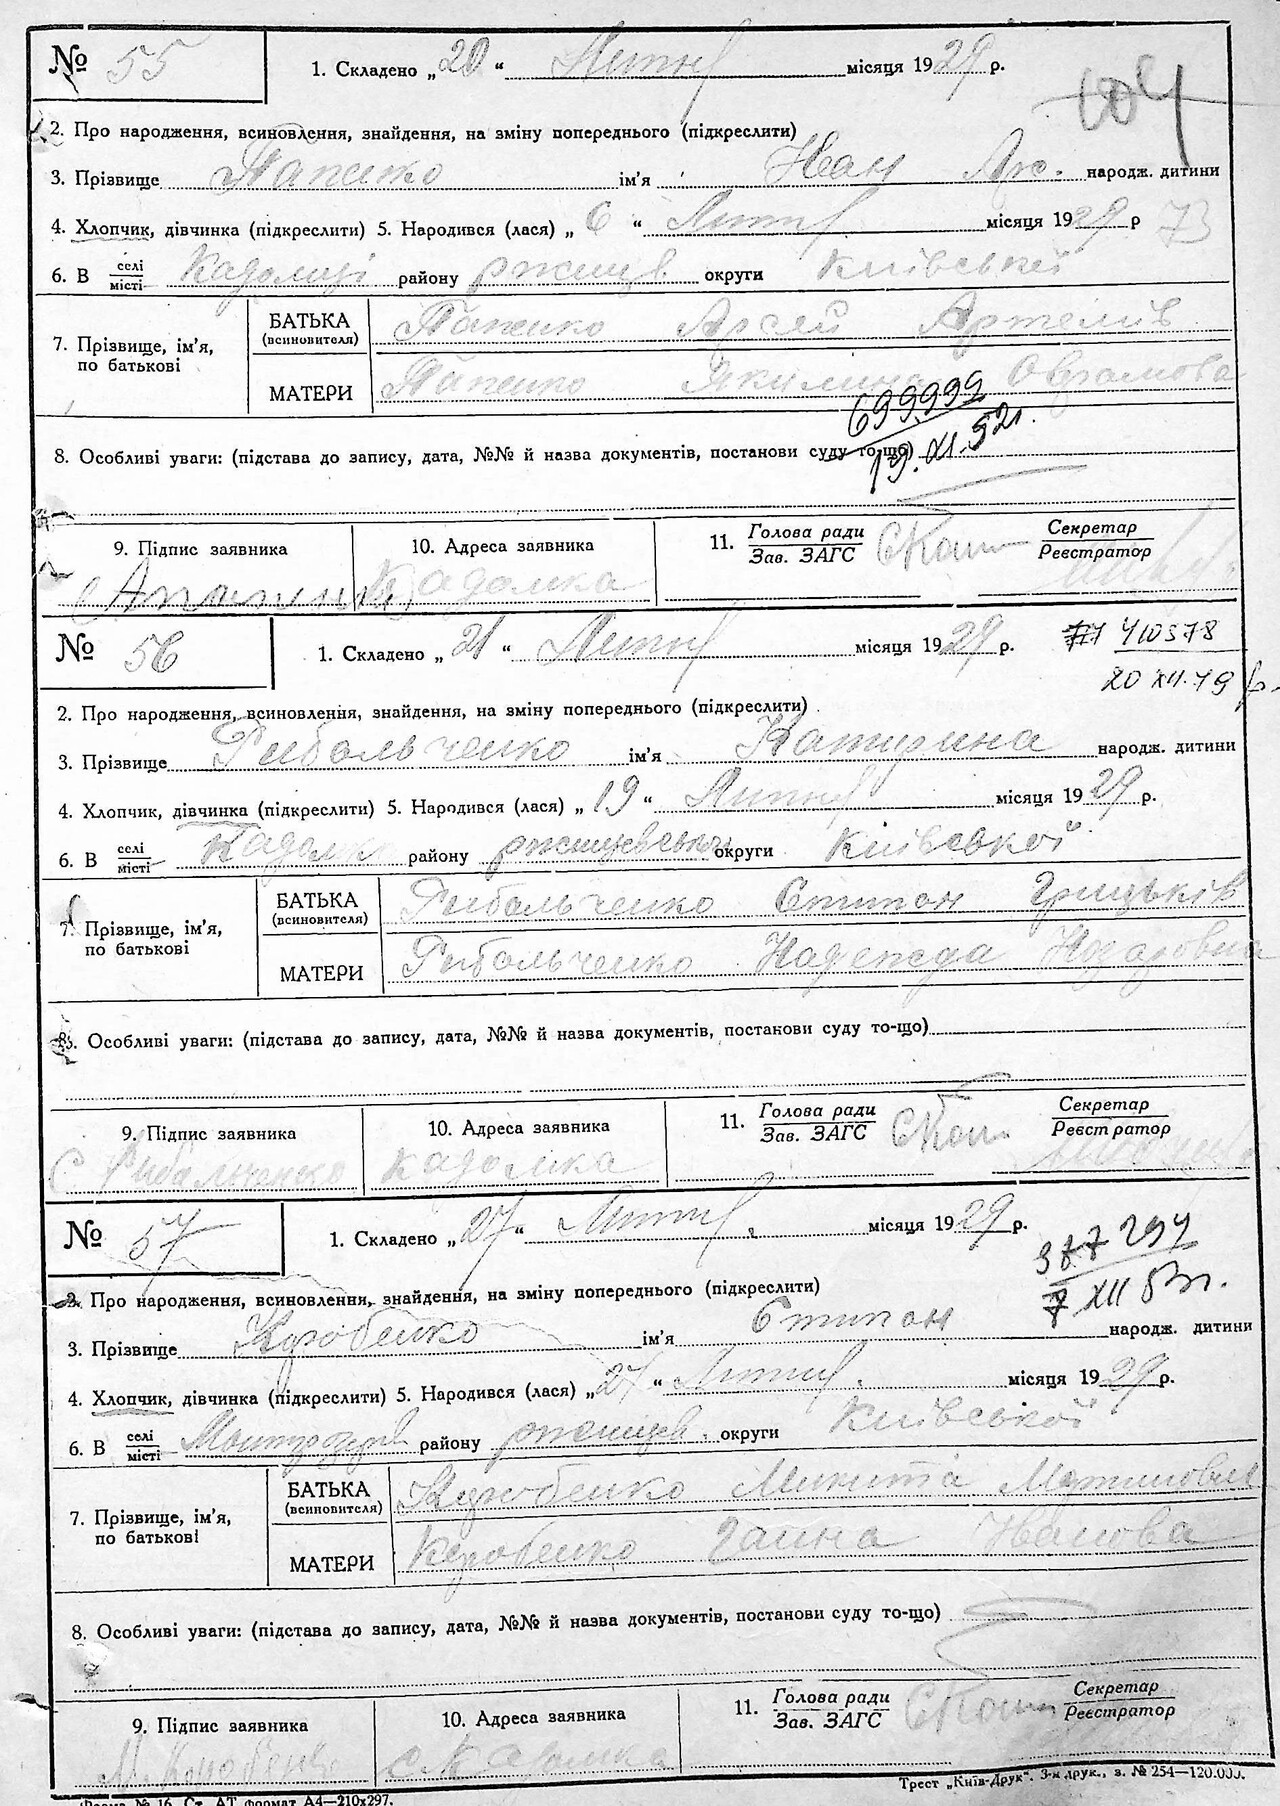 № 55 1. Складено „20“ Липня місяця 1929 р.
104
2. Про народження, всиновлення, знайдення, на зміну попереднього (підкреслити)
3. Прізвище Папенко ім'я Іван Арс. народж. дитини
4. Хлопчик, дівчинка (підкреслити) 5. Народився (лася) „6“ Липня місяця 1929 р 73
6. В селі/місті Кадомці району ржищев округи Київської
7. Прізвище, ім'я, по батькові
БАТЬКА (всиновителя) Папенко Арсен Артемів
МАТЕРИ Папенко Якилина Оврамова
699999
19.XI.52г.
8. Особливі уваги: (підстава до запису, дата, №№ й назва документів, постанови суду то-що)
9. Підпис заявника 10. Адреса заявника Кадомка 11. Голова ради/Зав. ЗАГС Секретар/Реєстратор
№ 56 1. Складено „21“ Липня місяця 1929 р.
410378
20 XII.79
2. Про народження, всиновлення, знайдення, на зміну попереднього (підкреслити)
3. Прізвище Рибальченко ім'я Катирина народж. дитини
4. Хлопчик, дівчинка (підкреслити) 5. Народився (лася) „19“ Липня місяця 1929 р.
6. В селі/місті Кадомка району ржищевської округи Київської
7. Прізвище, ім'я, по батькові
БАТЬКА (всиновителя) Рибальченко Стипан Грицьків
МАТЕРИ Рибальченко Надежда Назаровна
8. Особливі уваги: (підстава до запису, дата, №№ й назва документів, постанови суду то-що)
9. Підпис заявника С Рибальченко 10. Адреса заявника Кадомка 11. Голова ради/Зав. ЗАГС Секретар/Реєстратор
№ 57 1. Складено „27“ Липня місяця 1929 р.
377294
7 XII 53г.
2. Про народження, всиновлення, знайдення, на зміну попереднього (підкреслити)
3. Прізвище Коробенко ім'я Стипан народж. дитини
4. Хлопчик, дівчинка (підкреслити) 5. Народився (лася) „27“ Липня місяця 1929 р.
6. В селі/місті району ржищев. округи Київської
7. Прізвище, ім'я, по батькові
БАТЬКА (всиновителя) Коробенко Микита
МАТЕРИ Коробенко Ганна Іванова
8. Особливі уваги: (підстава до запису, дата, №№ й назва документів, постанови суду то-що)
9. Підпис заявника М. Коробенко 10. Адреса заявника с. Кадомка 11. Голова ради/Зав. ЗАГС Секретар/Реєстратор
Форма № 16. Ст. АТ формат А4—210х297. Трест „Київ-Друк". 3-я друк., з. № 254—120.000.